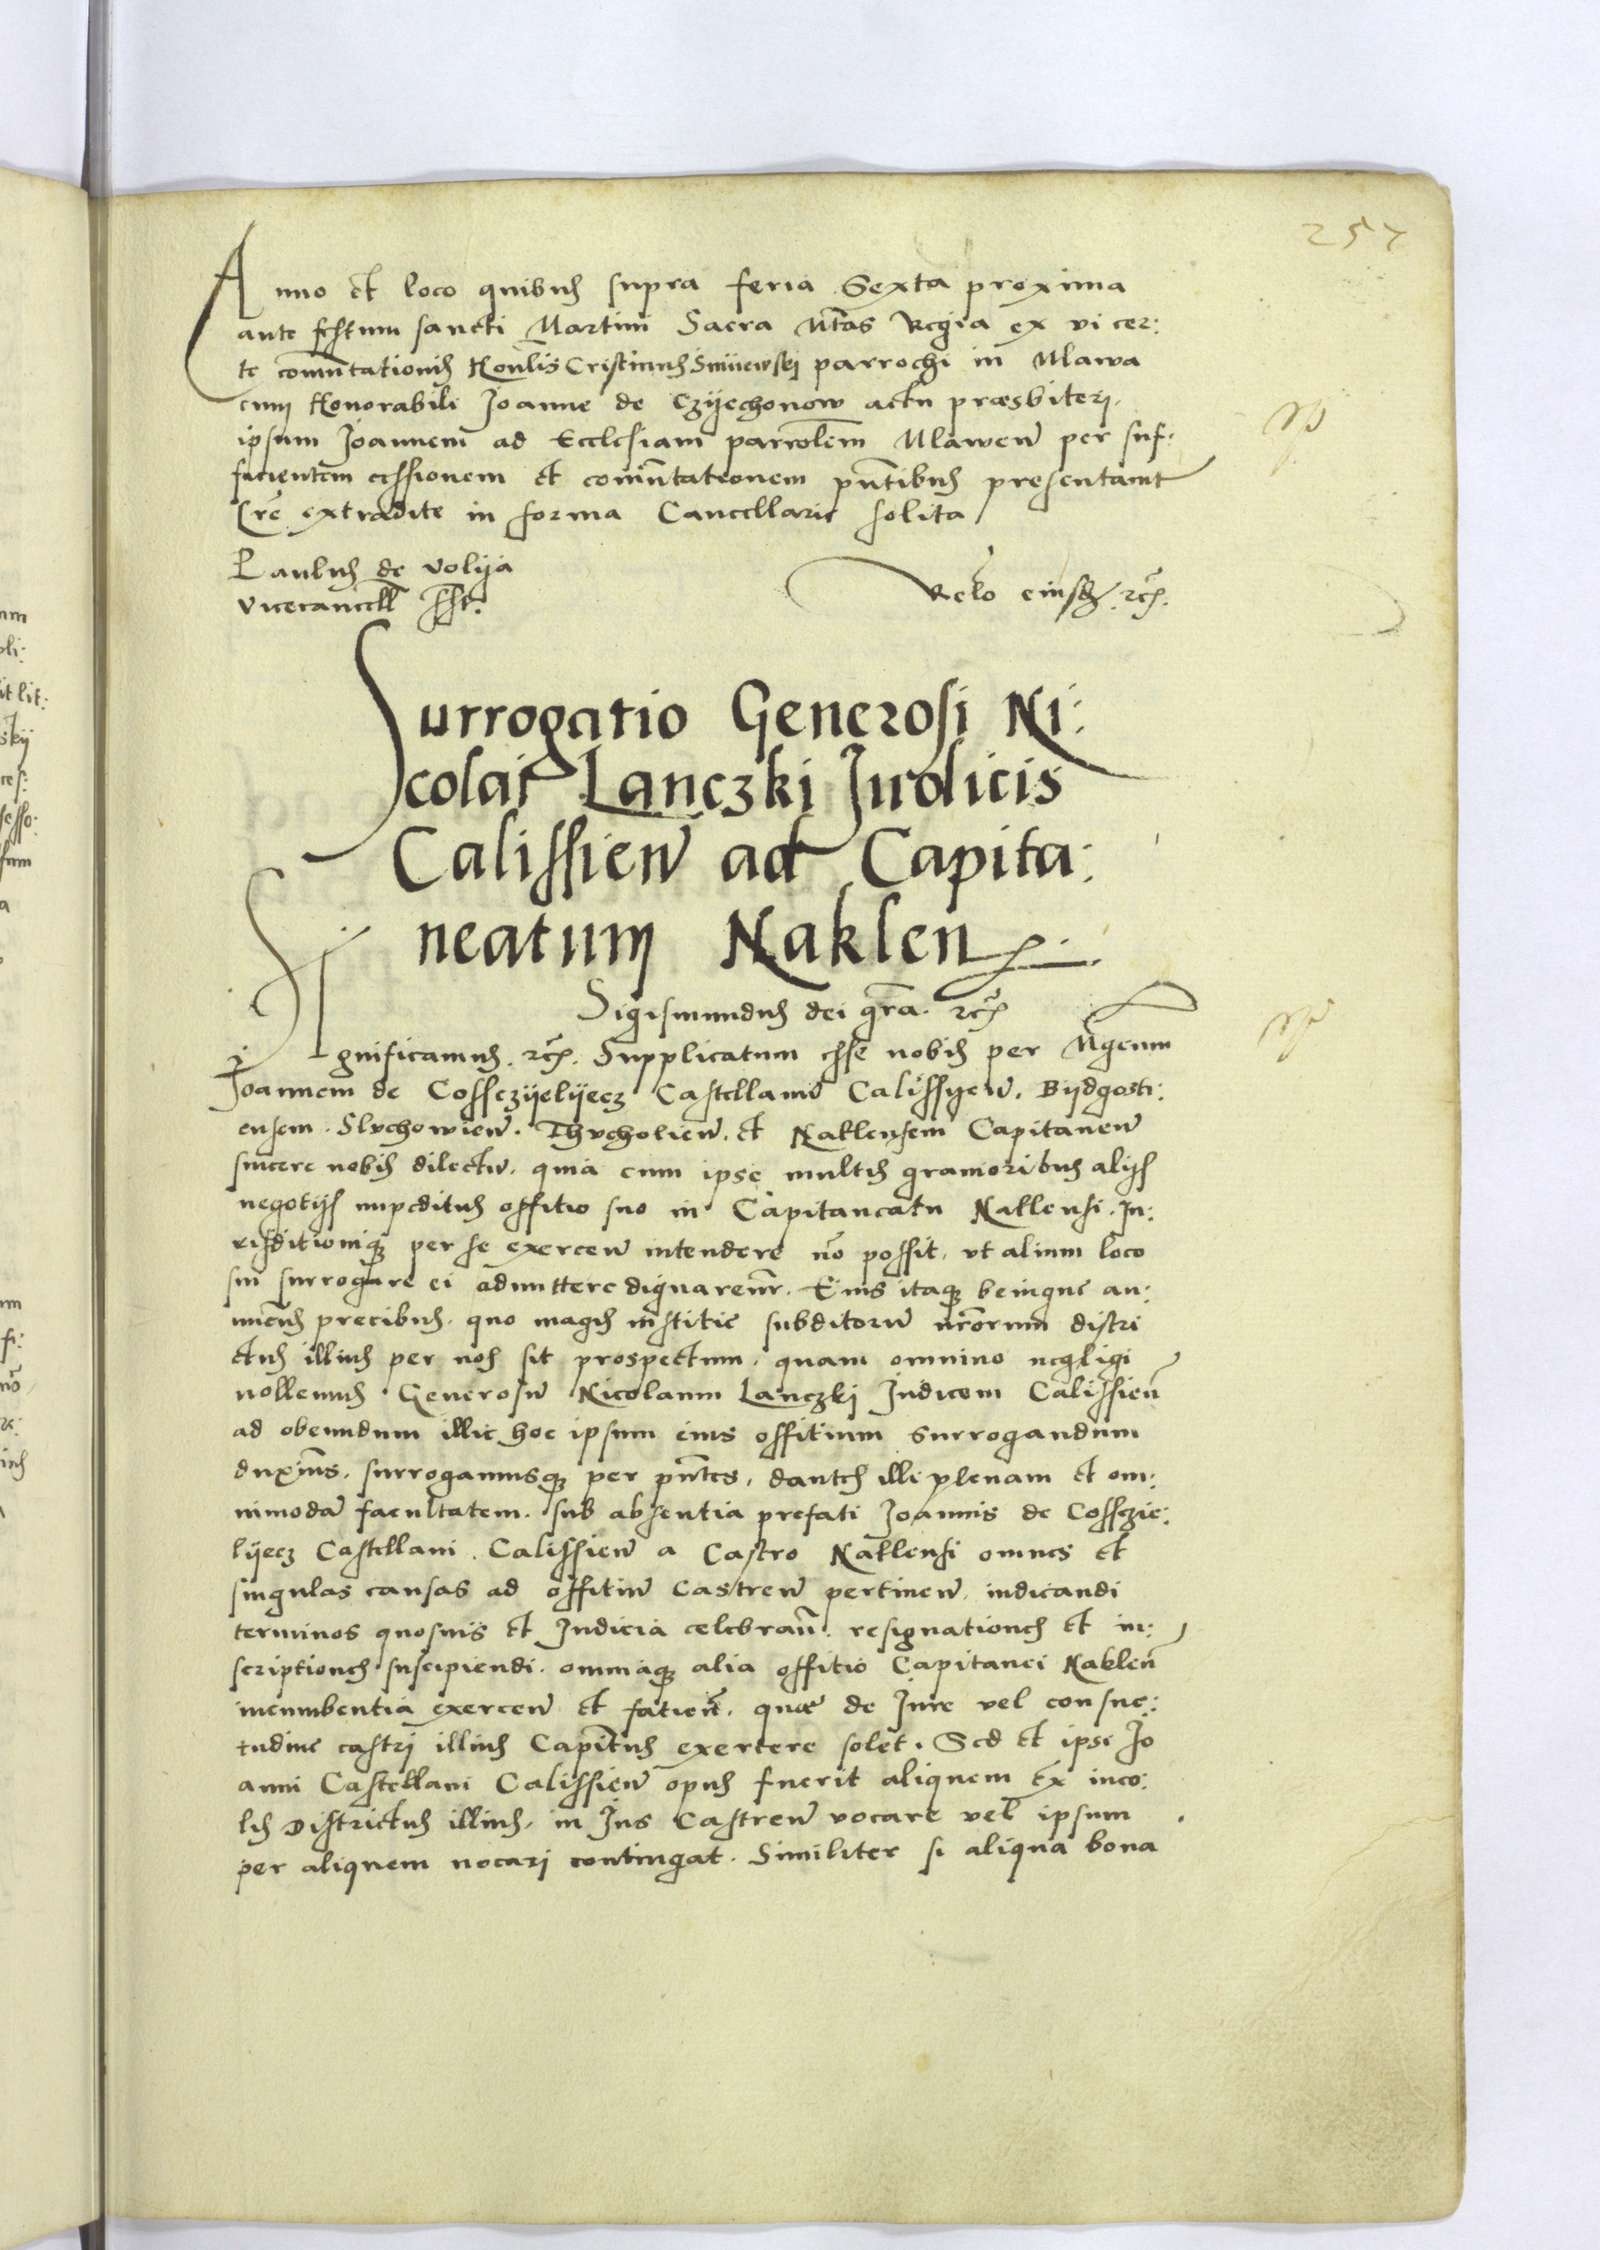 257
Anno et loco quibus supra feria Sexta proxima
ante festum sancti Martini Sacra Mtas Regia ex vi cer:
te comutationis Honlis Cristinus parrochi in Mlawa
cum Honorabili Joanne de Czyechonow actu præsbiteri.
ipsum Joannem ad Ecclesiam parrolem Mlawen per suf:
ficientem cessionem et comutationem pntibus presentauit
Lre extradite in forma Cancellarie solita
Paulus de volya
vicecancell sst.
Relo eiusdem rc.
Surrogatio Generosi Ni:
colai Lanczki Judicis
Calissien ad Capita:
neatum Naklen
Sigismundus dei gra. rc
Significamus. rc. Supplicatum esse nobis per Mgcum
Joannem de Cossczyelyecz Castellanu Calissyen. Bydgosti:
ensem. Sluchowien. Thucholien. et Naklensem Capitaneu
sincere nobis dilectu. quia cum ipse multis grauioribus alijs
negotijs impeditus offitio suo in Capitaneatu Naklensi. Ju:
risditionique per se exercen intendere no possit. vt alium loco
sui surrogare ei admittere dignaremr. Eius itaque benigne an:
nuens precibus. quo magis iustitie subditoru nrorum distri
ctus illius per nos sit prospectum. quam omnino negligi
nollemus. Generosu Nicolaum Lanczki Judicem Calissien
ad obeundum illic hoc ipsum eius offitium surrogandum
duximus. surrogamusque per pntes. dantes illi plenam et om:
nimoda facultatem. sub absentia prefati Joannis de Cossczie:
lyecz Castellani Calissien a Castro Naklensi omnes et
singulas causas ad offitiu Castren pertinen. iudicandi
terminos quosuis et Judicia celebran. resignationes et in:
scriptiones suscipiendi. omniaque alia offitio Capitanei Naklen
incumbentia exercen et facien. quæ de Jure vel consue:
tudine castri illius Capitnus exercere solet. Sed et ipse Jo
anni Castellani Calissien opus fuerit aliquem ex inco:
lis Districtus illius. in Jus Castren vocare vel ipsum
per aliquem uocari contingat. Similiter si aliqua bona